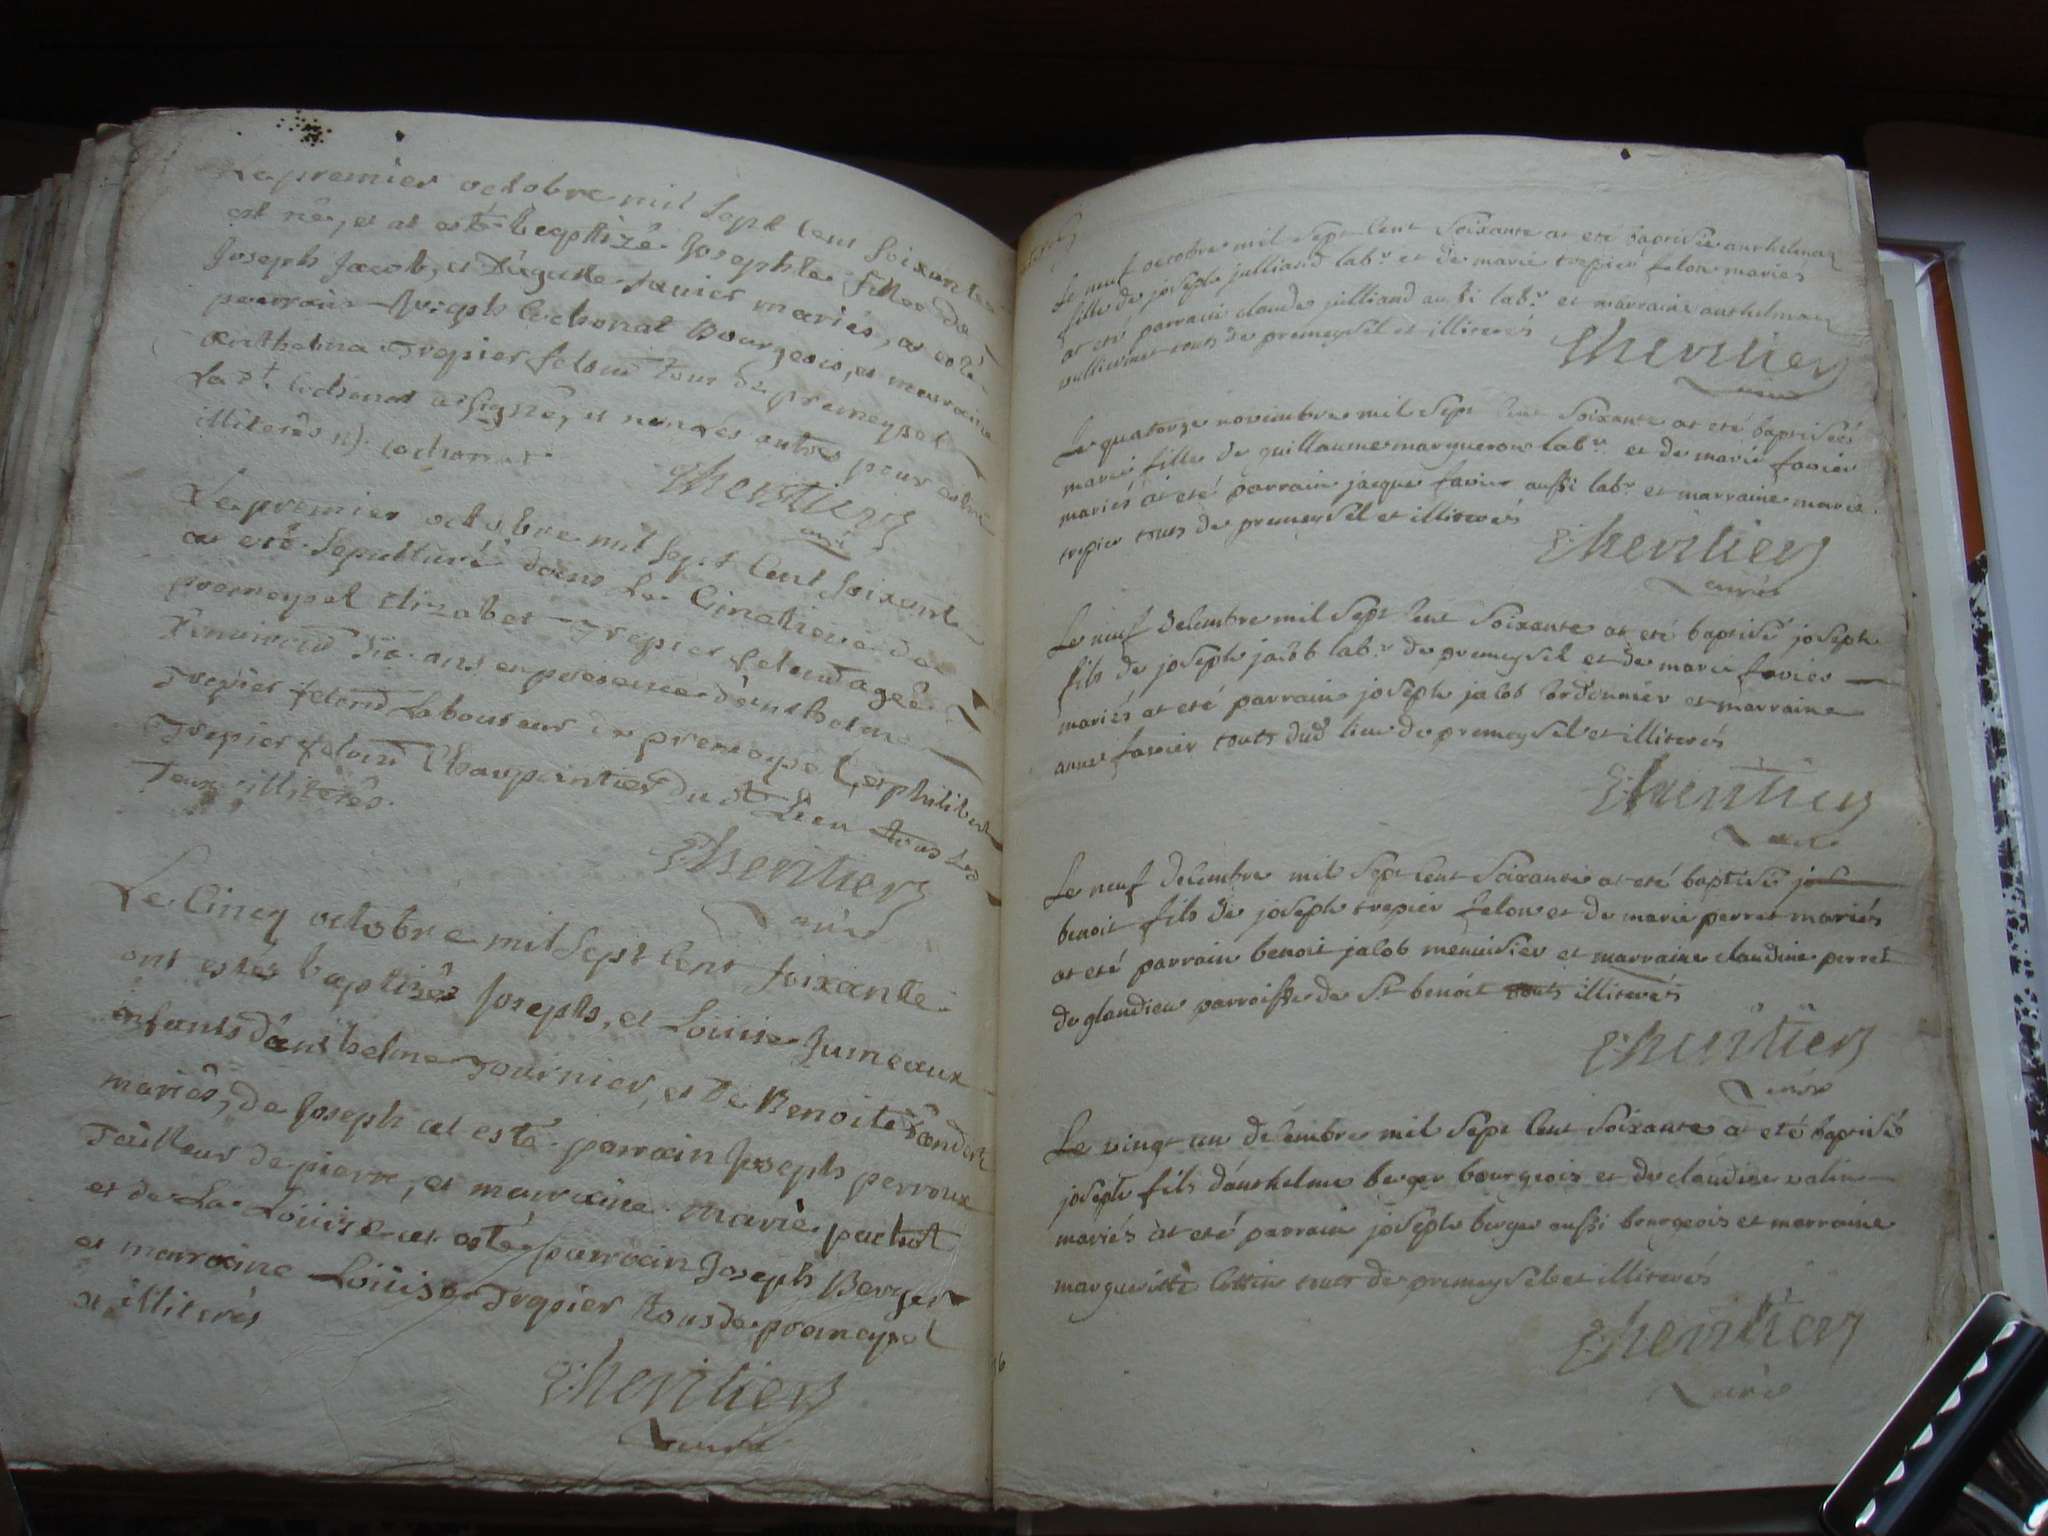 Le premier octobre mil sept cent soixante
est né, et at esté baptizé Josephte fillie de
Joseph Jacob, et favier mariés, at esté
parrain Joseph Cochonat Bourgeois, et marraine
anthelma Trepier felond tous de premeysel
La dt. Cochonat a signé, et non les autres pour estre
illiterés
Cochonat
Lheritier
curé
Le premier octobre mil sept cent soixante
at eté sepulturé dans Le Cimetiere de
premeysel Elizabet Trepier felond agée
d'environd dix ans en presence d'anthelme
Trepier felond Laboureur de premeysel, et philibert
Trepier felond Charpentier du dt Lieu tous Les
deux illiterés.
Lheritier
curé
Le Cincq octobre mil sept cent soixante
ont estés baptizés Joseph, et Loüise Jumeaux
enfants d'anthelme Tournier, et de Benoite
mariés, de Joseph at esté parrain Joseph perroux
Tailleur de pierre, et marraine Marie pachot
et de La Loüise at esté parrain Joseph Berger
et marraine Loüise Trepier tous de premeysel
et illiterés
Lheritier
curé
Le neuf octobre mil sept cent soixante at eté baptisée anthelmaz
fille de joseph julliand labr. et de marie trepier felon mariés
at eté parrain claude julliand aussi labr. et marraine anthelmaz
vulliermet touts de premeysel et illiterés
Lheritier
curé
Le quatorze novembre mil sept cent soixante at eté baptisée
marie fille de guillaume margueron labr. et de marie favier
mariés at eté parrain jacque favier aussi labr. et marraine marie
trepier touts de premeysel et illiterés
Lheritier
curé
Le neuf decembre mil sept cent soixante at eté baptisé joseph
fils de joseph jacob labr. de premeysel et de marie favier
mariés at eté parrain joseph jacob cordonnier et marraine
anne favier touts dud lieu de premeysel et illiterés
Lheritier
curé
Le neuf decembre mil sept cent soixante at eté baptisé jos
benoit fils de joseph trepier felon et de marie perret mariés
at eté parrain benoit jacob menuisier et marraine claudine perret
de glandieu parroisse de St benoit touts illiterés
Lheritier
curé
Le vingt un decembre mil sept cent soixante at eté baptisé
joseph fils d'anthelme berger bourgeois et de claudine valin
mariés at eté parrain joseph berger aussi bourgeois et marraine
margueritte cottin touts de premeysel et illiterés
Lheritier
curé